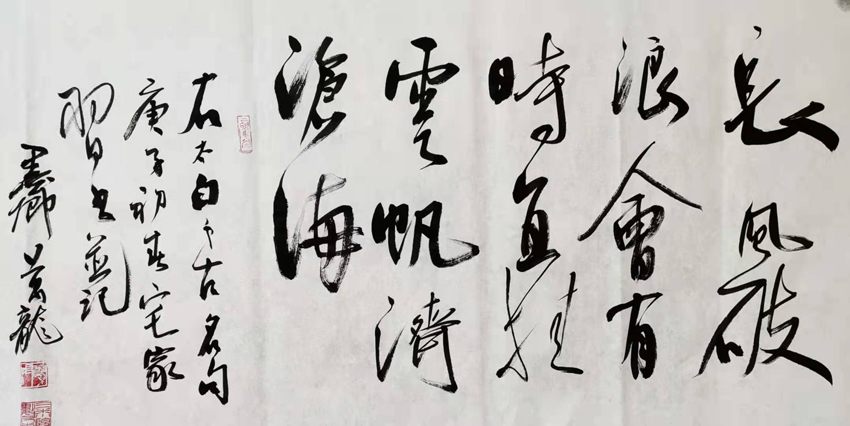 長風破
浪會有
時直挂
雲帆濟
滄海
右太白千古名句
庚子初春宅家
習書並記
萬龍